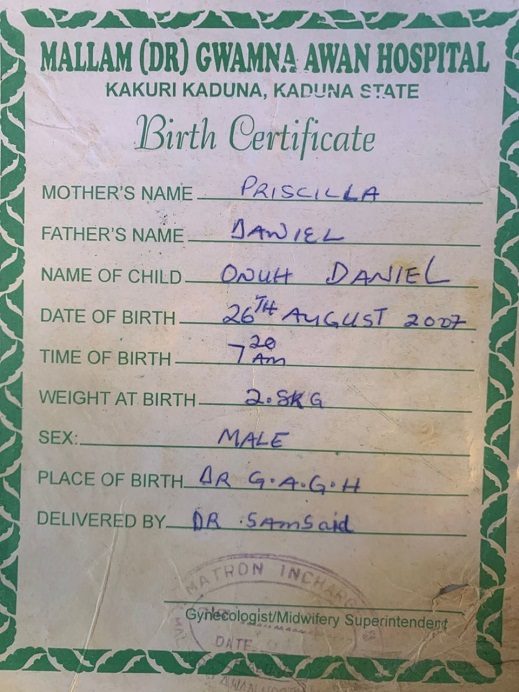 MALLAM (DR) GWAMNA AWAN HOSPITAL
KAKURI KADUNA, KADUNA STATE
Birth Certificate
MOTHER'S NAME PRISCILLA
FATHER'S NAME DANIEL
NAME OF CHILD ONUH DANIEL
DATE OF BIRTH 26TH AUGUST 2007
TIME OF BIRTH 7 20 AM
WEIGHT AT BIRTH 2.8KG
SEX: MALE
PLACE OF BIRTH DR G.A.G.H
DELIVERED BY DR . SAMSaid
MATRON INCHARGE
Gynecologist/Midwifery Superintendent
DATE